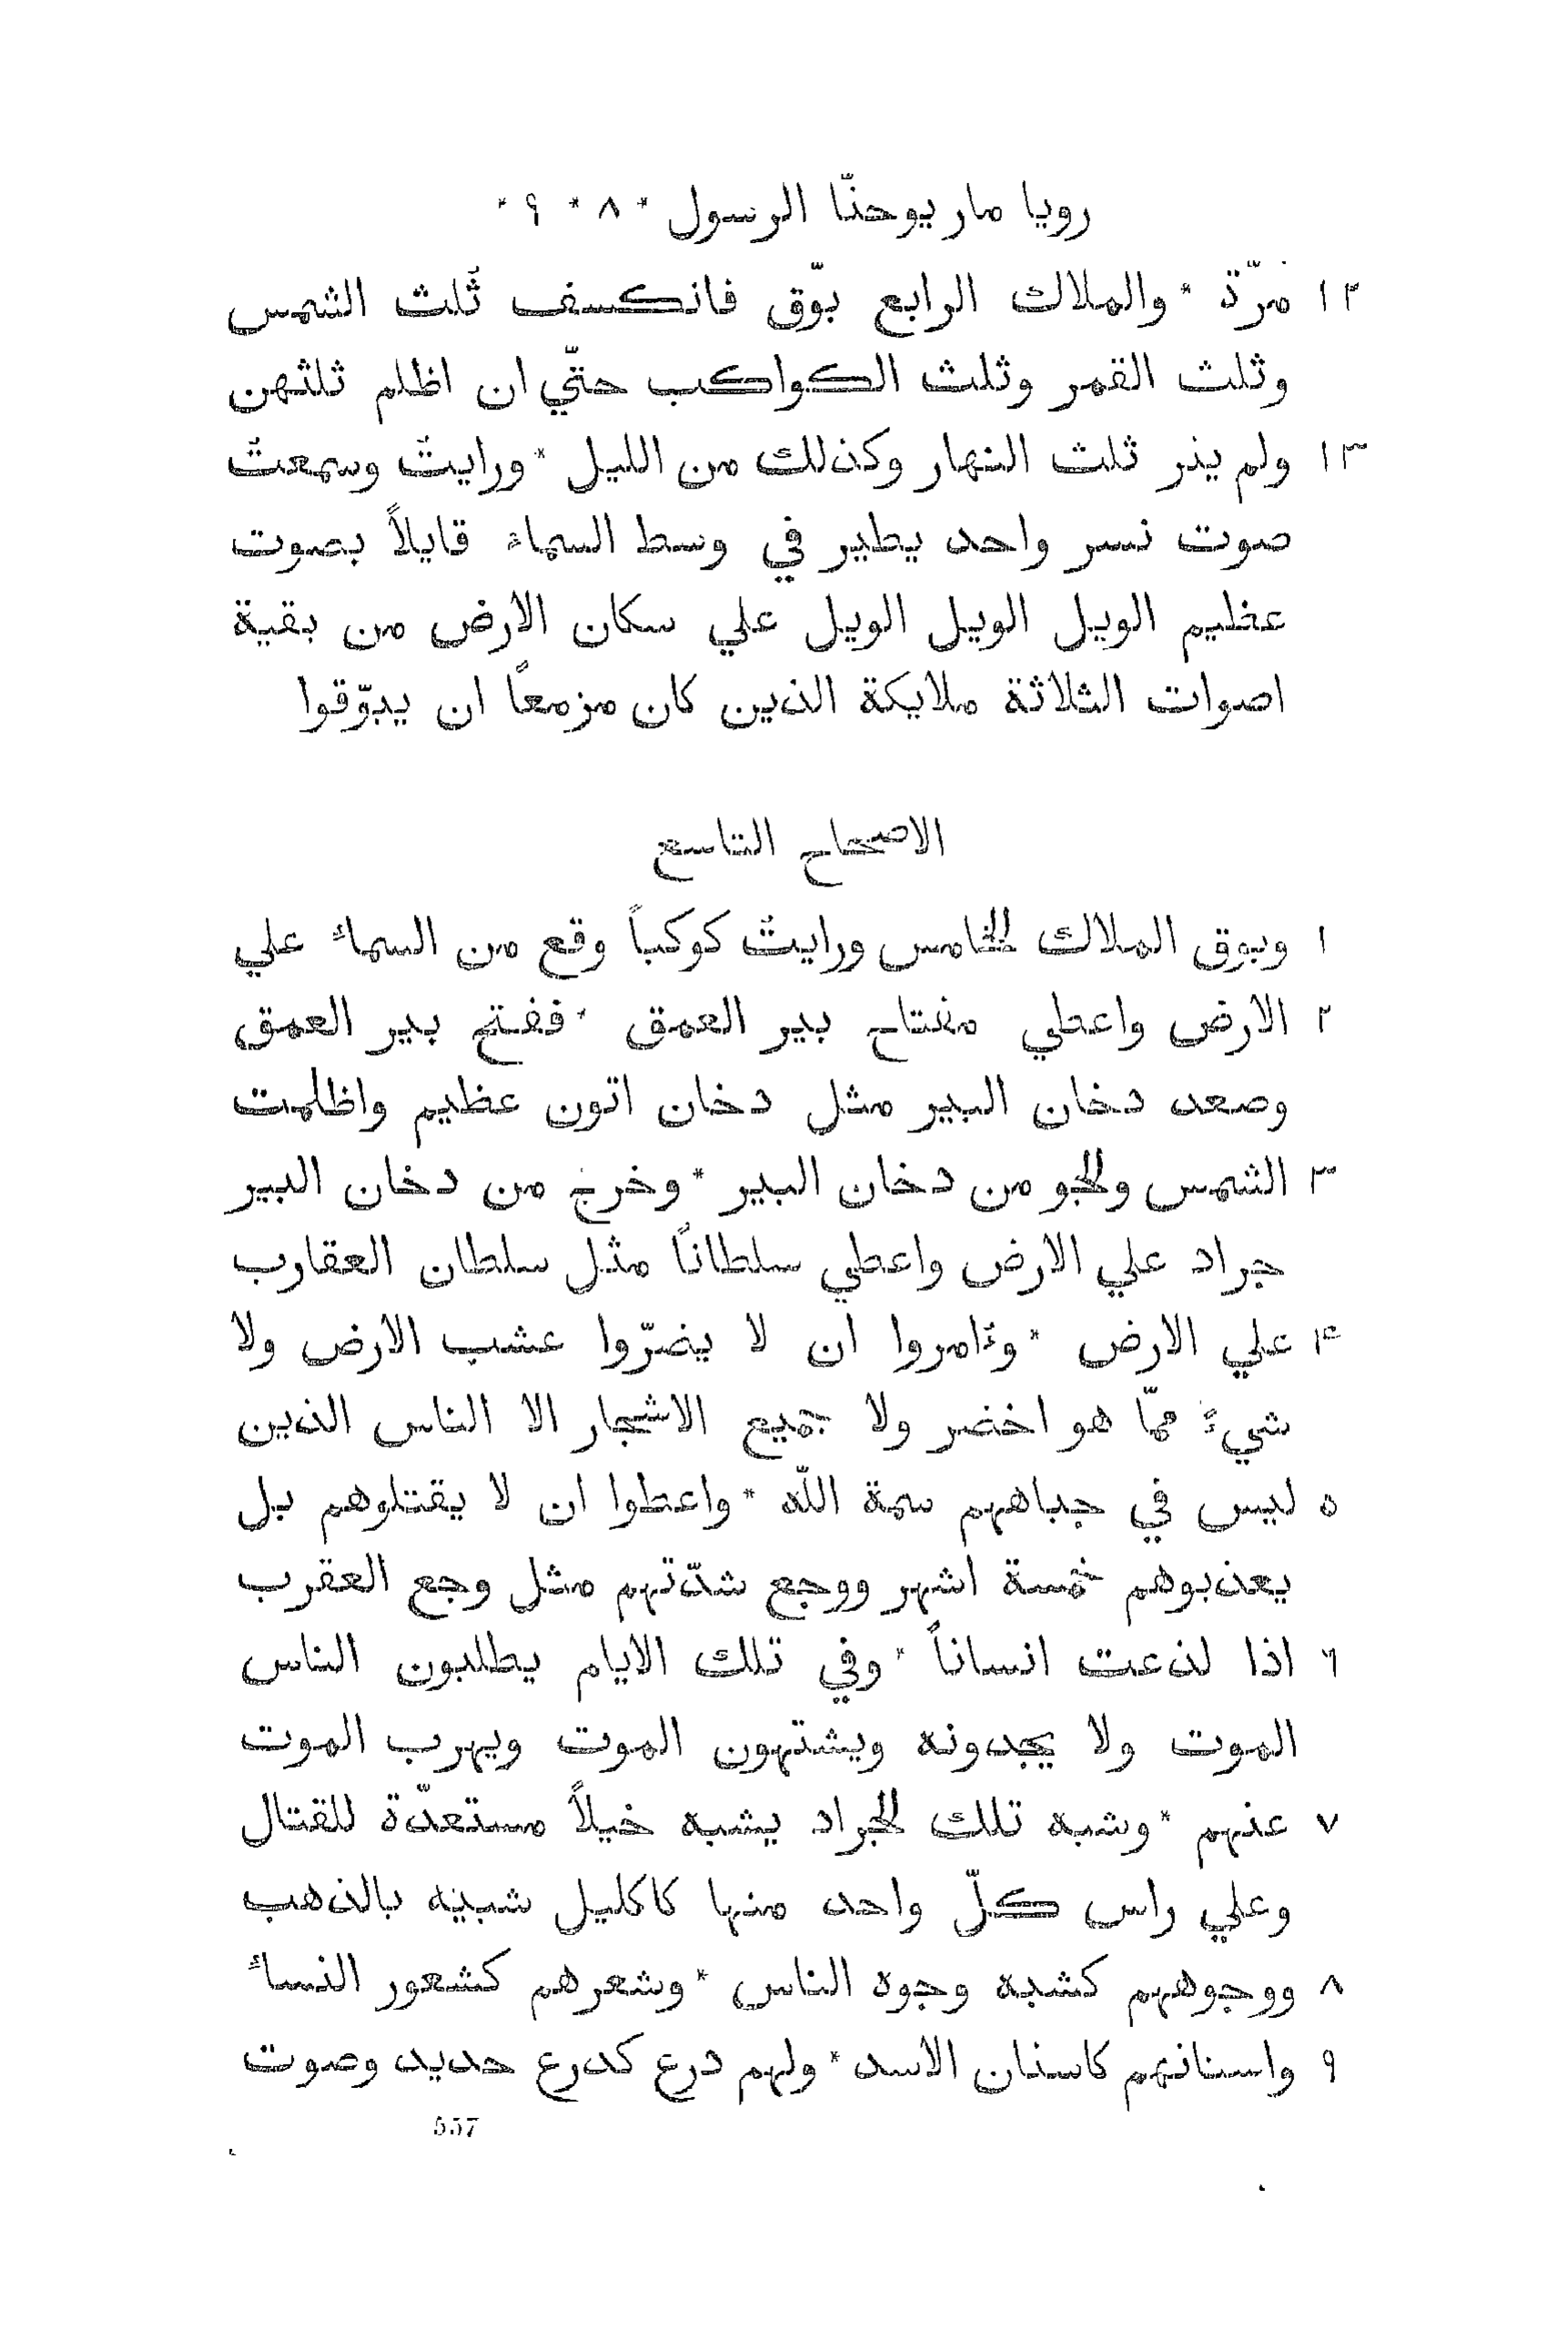 رويا مار يوحنّا الرسول * ٨ * ٩ *
١٢ مرّة * والملاك الرابع بوّق فانكسف ثلث الشمس
وثلث القمر وثلث الكواكب حتّي ان اظلم ثلثهن
١٣ ولم ينر ثلث النهار وكذلك من الليل * ورايتُ وسمعتُ
صوت نسر واحد يطير في وسط السماء قايلاً بصوت
عظيم الويل الويل الويل علي سكان الارض من بقية
اصوات الثلاثة ملايكة الذين كان مزمعاً ان يبوّقوا
الاصحاح التاسع
١ وبوق الملاك الخامس ورايتُ كوكباً وقع من السماء علي
٢ الارض واعطي مفتاح بير العمق * ففتح بير العمق
وصعد دخان البير مثل دخان اتون عظيم واظلمت
٣ الشمس والجو من دخان البير * وخرج من دخان البير
جراد علي الارض واعطي سلطاناً مثل سلطان العقارب
٤ علي الارض * وءُامروا ان لا يضرّوا عشب الارض ولا
شيءً ممّا هو اخضر ولا جميع الاشجار الا الناس الذين
٥ ليس في جباههم سمة اللّه * واعطوا ان لا يقتلوهم بل
يعذبوهم خمسة اشهر ووجع شدّتهم مثل وجع العقرب
٦ اذا لذعت انساناً * وفي تلك الايام يطلبون الناس
الموت ولا يجدونه ويشتهون الموت ويهرب الموت
٧ عنهم * وشبه تلك الجراد يشبه خيلاً مستعدّة للقتال
وعلي راس كلّ واحد منها كاكليل شبيه بالذهب
٨ ووجوههم كشبه وجوه الناس * وشعرهم كشعور النساء
٩ واسنانهم كاسنان الاسد * ولهم درع كدرع حديد وصوت
557